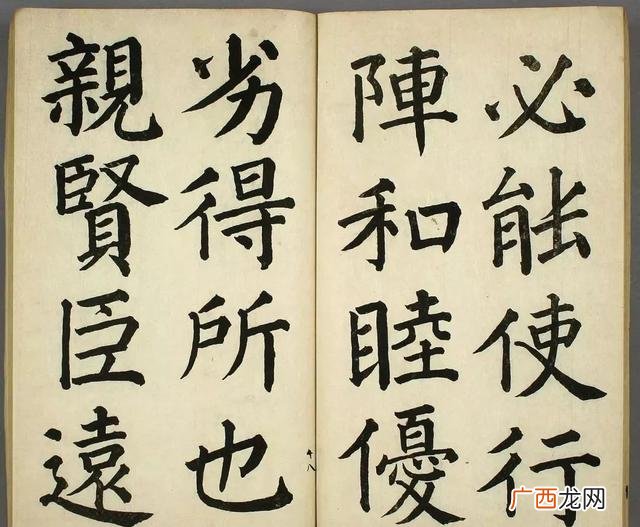 必能使行
陣和睦優
劣得所也
親賢臣遠
十八
广西龙网